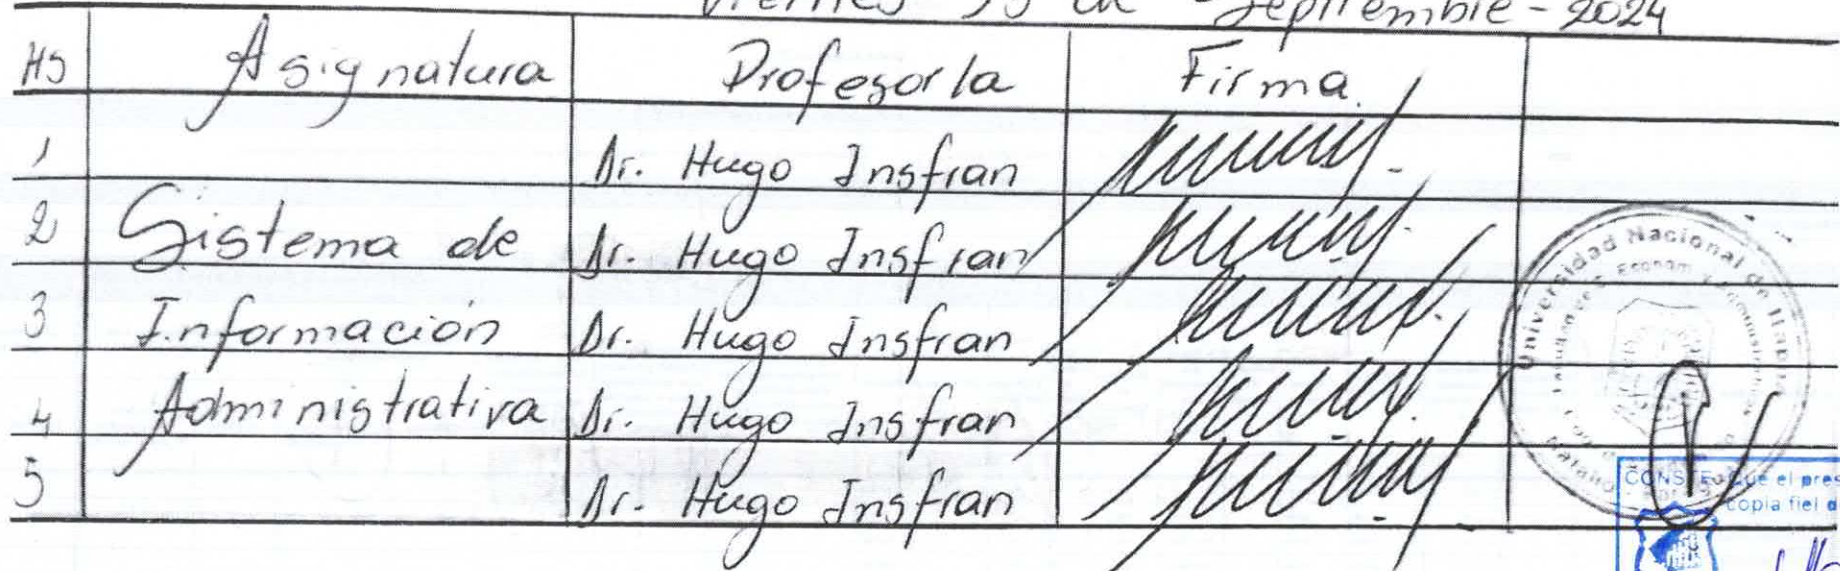 Viernes 13 de Septiembre - 2024
HS Asignatura Profesor/a Firma
1 Dr. Hugo Insfran
2 Sistema de Dr. Hugo Insfran
3 Información Dr. Hugo Insfran
4 Administrativa Dr. Hugo Insfran
5 Dr. Hugo Insfran
Universidad Nacional de Itapúa
CONSTE Que el pres
copia fiel d